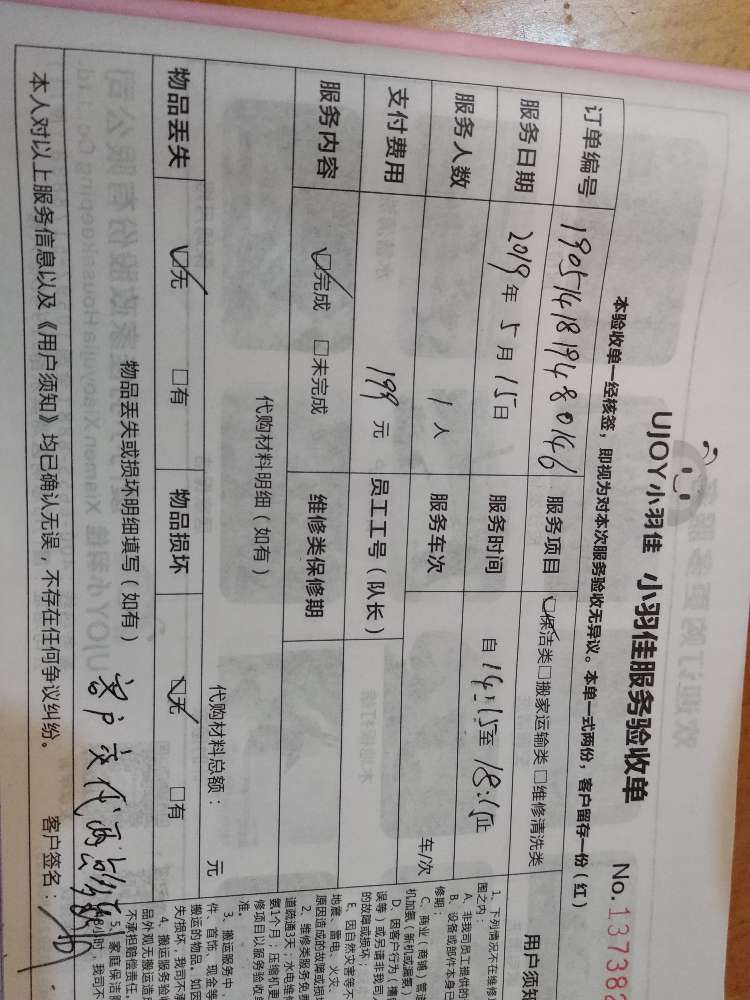 UJOY小羽佳 小羽佳服务验收单 No.137382
本验收单一经核签，即视为对本次服务验收无异议。本单一式两份，客户留存一份（红）
订单编号 1905141819480146 服务项目 ☑保洁类□搬家运输类□维修清洗类
服务日期 2019年5月15日 服务时间 自14:15至18:15止
服务人数 1人 服务车次 车/次
支付费用 199元 员工工号（队长）
服务内容 ☑完成 □未完成 维修类保修期
代购材料明细（如有） 代购材料总额： 元
物品丢失 ☑无 □有 物品损坏 ☑无 □有
物品丢失或损坏明细填写（如有）
客户交代
本人对以上服务信息以及《用户须知》均已确认无误，不存在任何争议纠纷。 客户签名：
用户须知
1、下列情况不在维修
围之内：
A、非我司员工提供的
B、设备或部件本身已
修期；
C、商业（商铺）管道
机加氨（新机或漏氨）
D、因客户行为（擅
误等）或另请非我司
的故障或损坏；
E、因自然灾害等不
地震、雷电、火灾、
原因造成的故障或损
2、维修类服务免费
道疏通3天；水电维修
氨1个月；压缩机更
修项目以服务验收单
准。
3、搬运服务中
件、首饰、现金等
搬运的物品。如因
失/损坏，我司不承
4、搬运服务验收
品外观无搬运造成
不承担赔偿责任。
5、家庭保洁服
小时，我司不